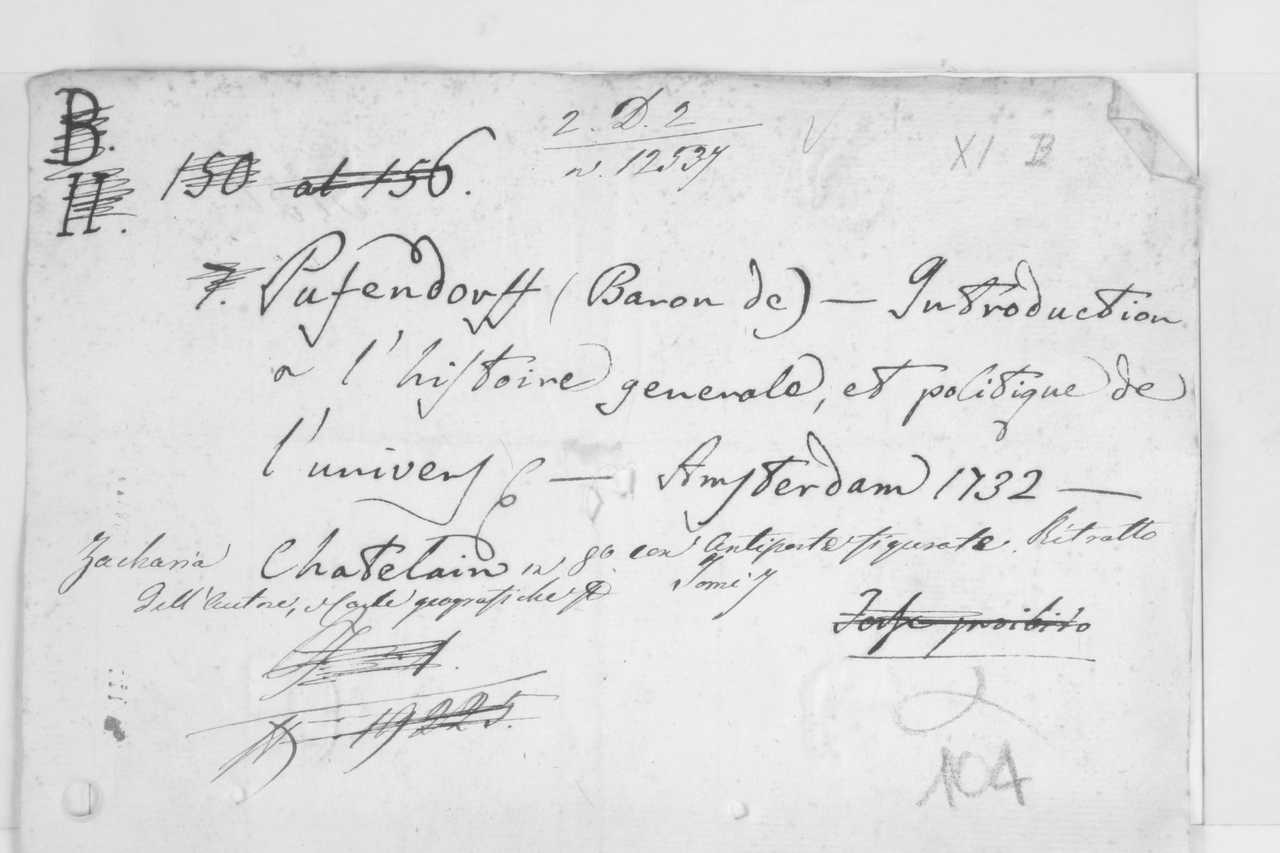 B.
H.
150 al 156.
2. D. 2
n. 12537
V
XI B
7. Pufendorff (Baron de) — Introduction
a l'histoire generale, et politique de
l'univers — Amsterdam 1732 —
Zacharia Chatelain in 8o. con Antiporte figurate. Ritratto
dell'Autore, e Carte geografiche Tomi 7
Forse proibito
N. 19225.
104